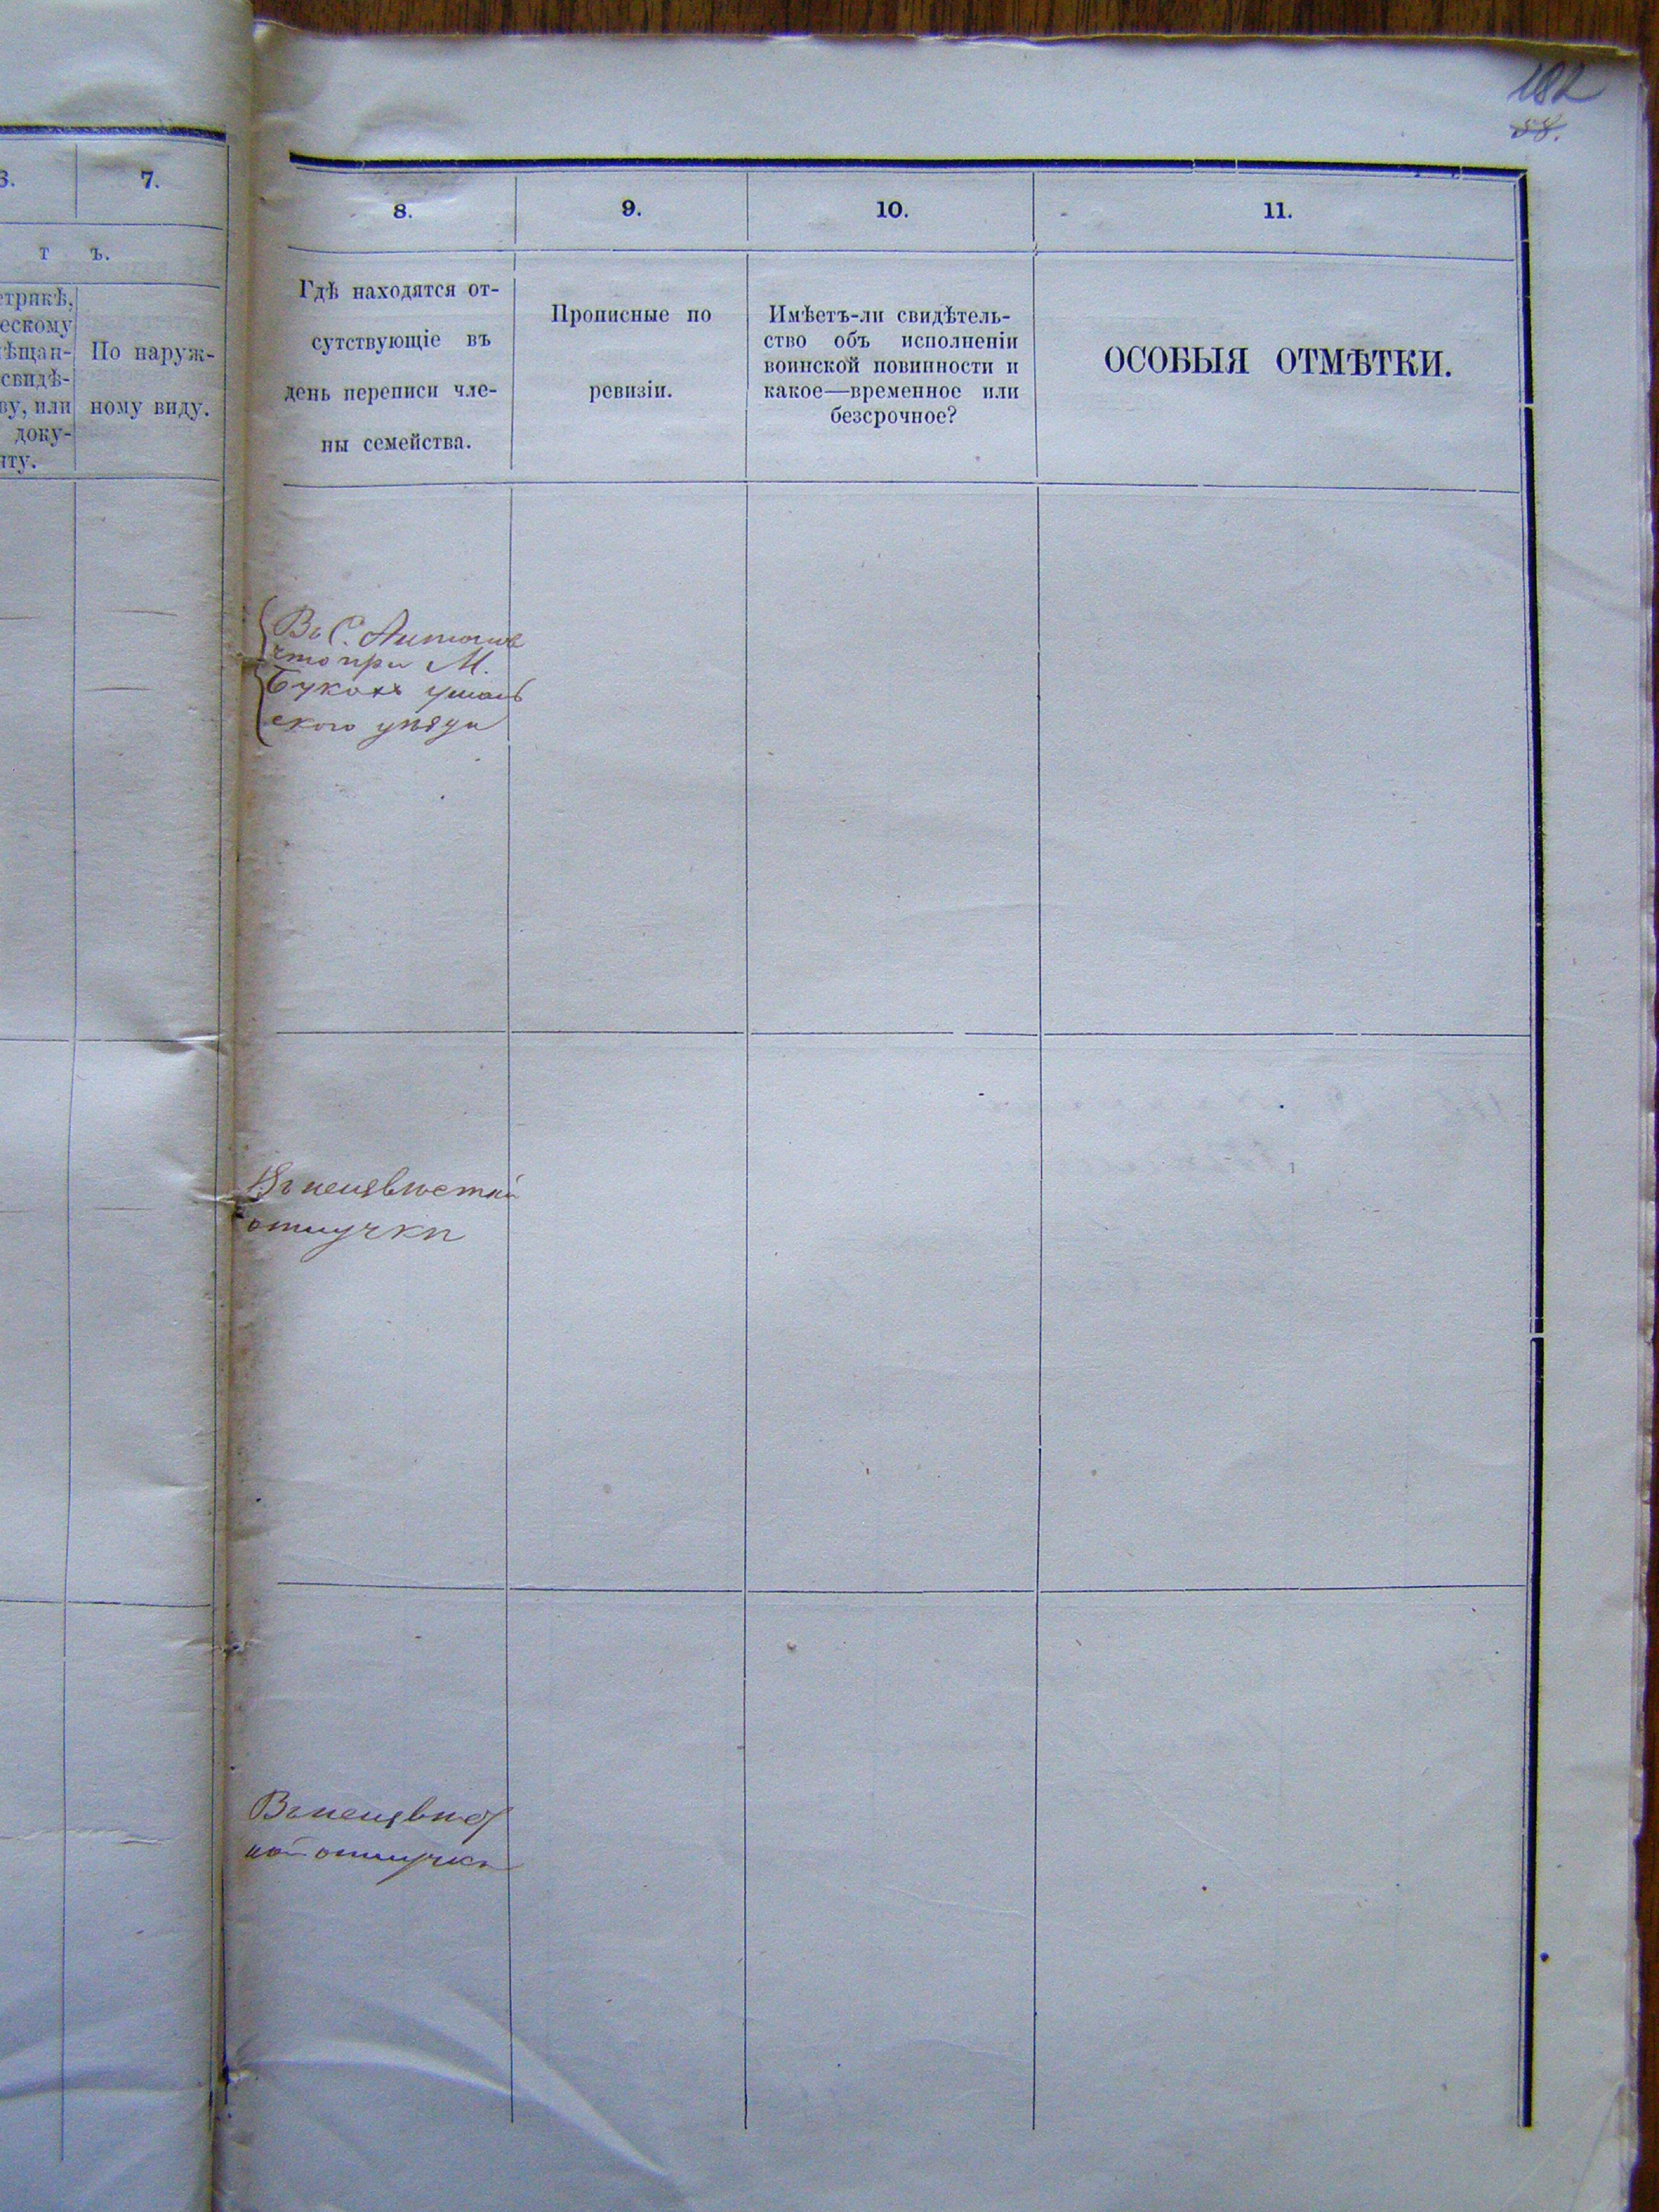 182
58.
6.
7.
8.
9.
10.
11.
т ъ.
етрикѣ,
ескому
ѣщан-
свидѣ-
ву, или
доку-
нту.
По наруж-
ному виду.
Гдѣ находятся от-
сутствующіе въ
день переписи чле-
ны семейства.
Прописные по
ревизіи.
Имѣетъ-ли свидѣтель-
ство объ исполненіи
воинской повинности и
какое—временное или
безсрочное?
ОСОБЫЯ ОТМѢТКИ.
Въ С.
что при М.
Букахъ уман
ского уѣзда
Въ неизвѣстной
отлучкѣ
Въ неизвѣст
ной отлучкѣ